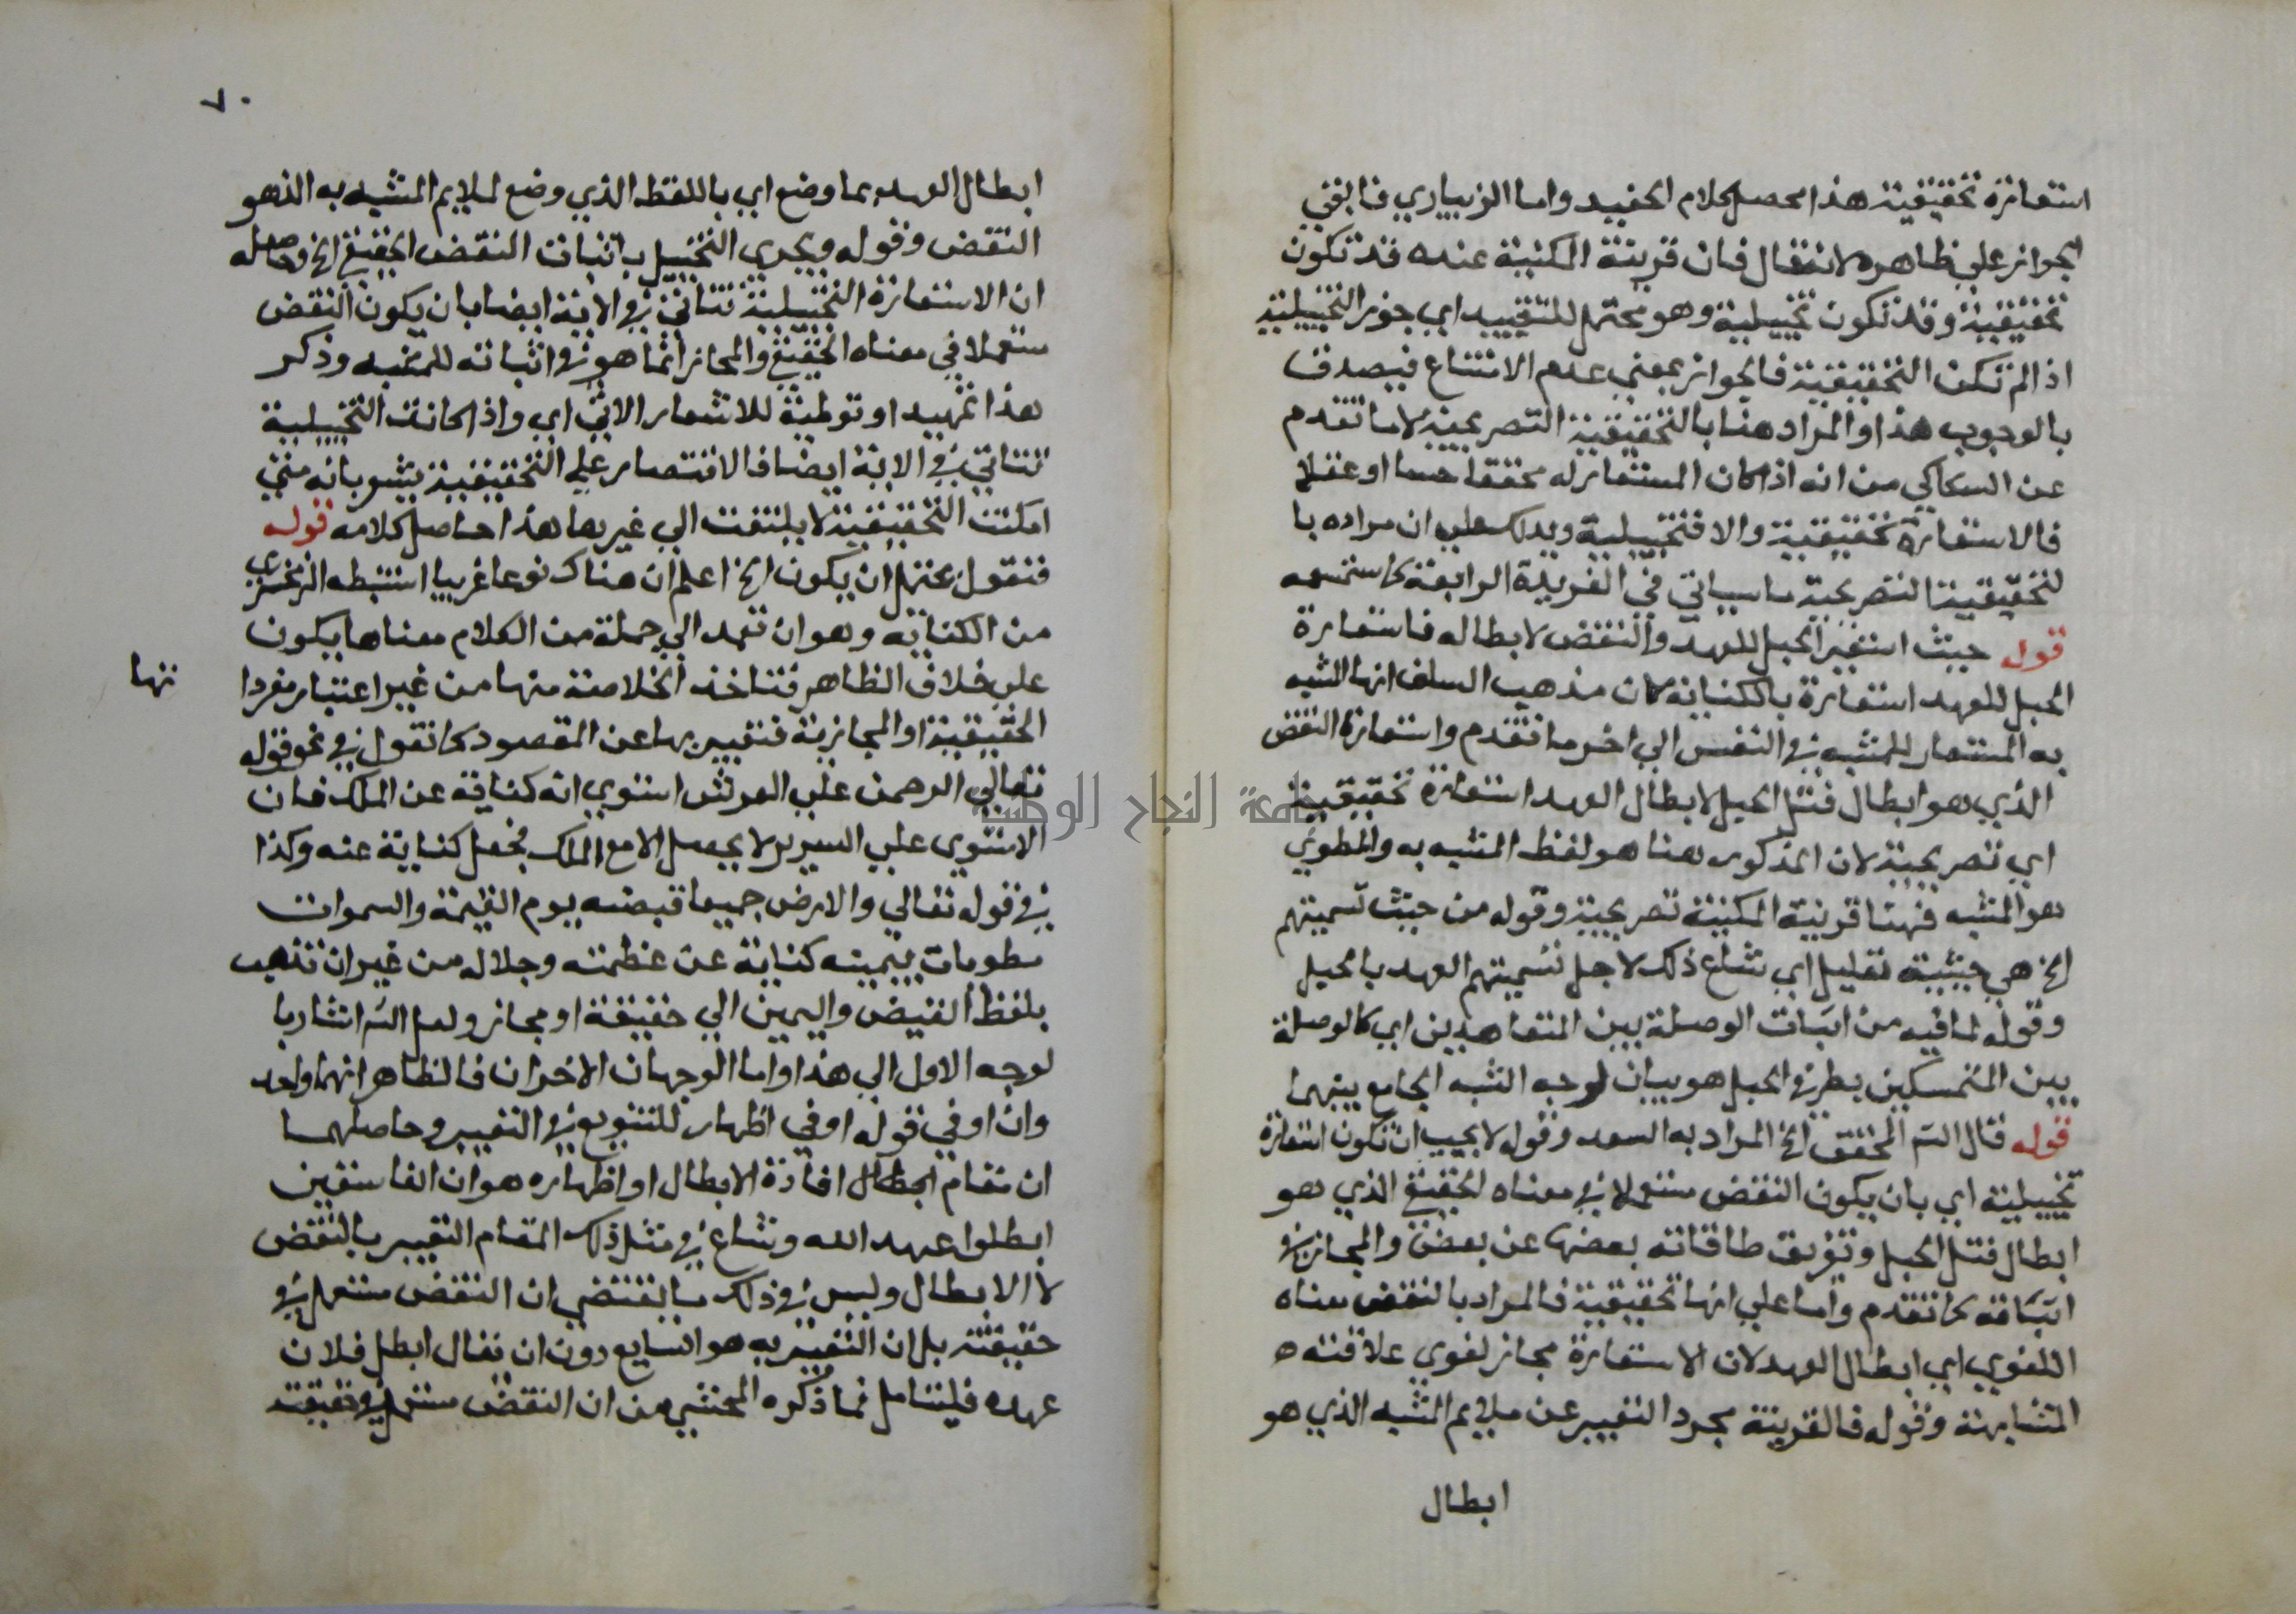 استعارة تحقيقية هذا محصل كلام الحفيد واما الزيباري فابقي
الجواز علي ظاهره لانه قال فان قرينة المكنية عنده قد تكون
تحقيقية وقد تكون تخييلية وهو محتمل للتقييد اي جوز التخييلية
اذا لم تكن التحقيقية فالجواز بمعني عدم الامتناع فيصدق
بالوجوب هذا والمراد هنا بالتحقيقية التصريحية لا ما تقدم
عن السكاكي من انه اذا كان المستعار له محققا حسا او عقلا
فالاستعارة تحقيقية والا فتخييلية ويدلك علي ان مراده با
لتحقيقية التصريحية ما سياتي في الفريدة الرابعة كما ستسمعه
قوله حيث استعير الحبل للعهد والنقض لابطاله فاستعارة
الحبل للعهد استعارة بالكناية كان مذهب السلف انها المشبه
به المستعار للمشبه في النفس الي اخر ما تقدم واستعارة النقض
الذي هو ابطال فتل الحبل لابطال العهد استعارة تحقيقية
اي تصريحية لان المذكور هنا هو لفظ المشبه به والمطوي
هو المشبه فهنا قرينة المكنية تصريحية وقوله من حيث تسميتهم
الخ هي حيثية تعليل اي شاع ذلك لاجل تسميتهم العهد بالحبل
وقوله لما فيه من اثبات الوصلة بين المتعاهدين اي كالوصلة
بين المتمسكين بطرفي الحبل هو بيان لوجه الشبه الجامع بينهما
قوله قال الش المحقق الخ المراد به السعد وقوله لا يجب ان تكون استعارة
تخييلية اي بان يكون النقض مستعملا في معناه الحقيقي الذي هو
ابطال فتل الحبل وتفريق طاقاته بعضها عن بعض والمجاز في
اثباته كما تقدم واما علي انها تحقيقية فالمراد بالنقض معناه
اللغوي اي ابطال العهد لان الاستعارة مجاز لغوي علاقته ه
المشابهة وقوله فالقرينة مجرد التعبير عن ملايم المشبه الذي هو
ابطال
٧٠
ابطال العهد بما وضع اي باللفظ الذي وضع لملايم المشبه به الذهو
النقض وقوله ويجري التخييل باثبات النقض الحقيقي الخ وحاصله
ان الاستعارة التخييلية تتاتي في الاية ايضا بان يكون النقض
مستعملا في معناه الحقيقي والمجاز انما هو في اثباته للمشبه وذكر
هذا تمهيد او توطئة للاشعار الاتي اي واذا كانت التخييلية
تتاتي في الاية ايضا فالاقتصار علي التحقيقية يشعر بانه متي
امكنت التحقيقية لا يلتفت الي غيرها هذا حاصل كلامه قوله
فنقول يحتمل ان يكون الخ اعلم ان هناك نوعا غريبا استنبطه الزمخشري
من الكنايه وهو ان تعمد الي جملة من الكلام معناها يكون
علي خلاف الظاهر فتاخذ الخلاصة منها من غير اعتبار مفردا
تها
الحقيقية او المجازية فتعبر بها عن المقصود كما تقول في نحو قوله
تعالي الرحمن علي العرش استوي انه كناية عن الملك فان
الاستوي علي السرير لا يحصل الا مع الملك فجعل كناية عنه وكذا
في قوله تعالي والارض جميعا قبضته يوم القيمة والسموات
مطويات بيمينه كناية عن عظمته وجلاله من غير ان تذهب
بلفظ القبض واليمين الي حقيقة او مجاز ولعل الش اشار با
لوجه الاول الي هذا واما الوجهان الاخران فالظاهر انهما واحد
وان او في قوله او في اظهار للتنويع في التعبير وحاصلهما
ان مقام ابطال افادة الابطال او اظهاره هو ان الفاسقين
ابطلوا عهد الله وشاع في مثل ذلك المقام التعبير بالنقض
لا الابطال وليس في ذلك ما يقتضي ان النقض مستعمل في
حقيقته بل ان التعبير به هو الشايع دون ان يقال ابطل فلان
عهده فليتامل فما ذكره المحشي من ان النقض مستعمل في حقيقته
جامعة النجاح الوطنية